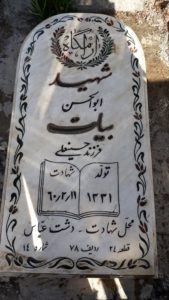 آرامگاه
شهید
ابوالحسن
بیات
فرزند حسینعلی
تولد
شهادت
۱۳۳۱
۶۰/۲/۱۱
محل شهادت - دشت عباس
قطعه ۲۴ ردیف ۷۸ شماره ۱۴